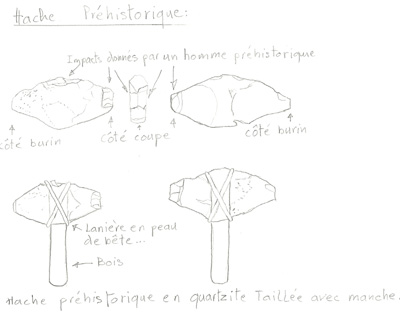 Hache Préhistorique:
Impacts donnés par un homme préhistorique
côté burin
côté coupe
côté burin
Lanière en peau
de bête...
Bois
Hache préhistorique en quartzite Taillée avec manche.